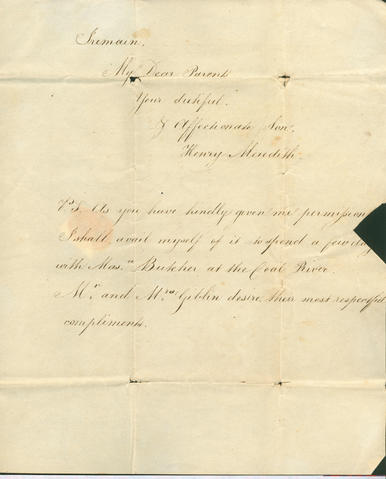 I remain,
My Dear Parents
Your dutiful
& Affectionate Son,
Henry Meredith.
P.S. As you have kindly given me permission
I shall avail myself of it to spend a few days
with Mas.r Butcher at the Coal River.
M.r and M.rs Giblin desire their most respectful
compliments.